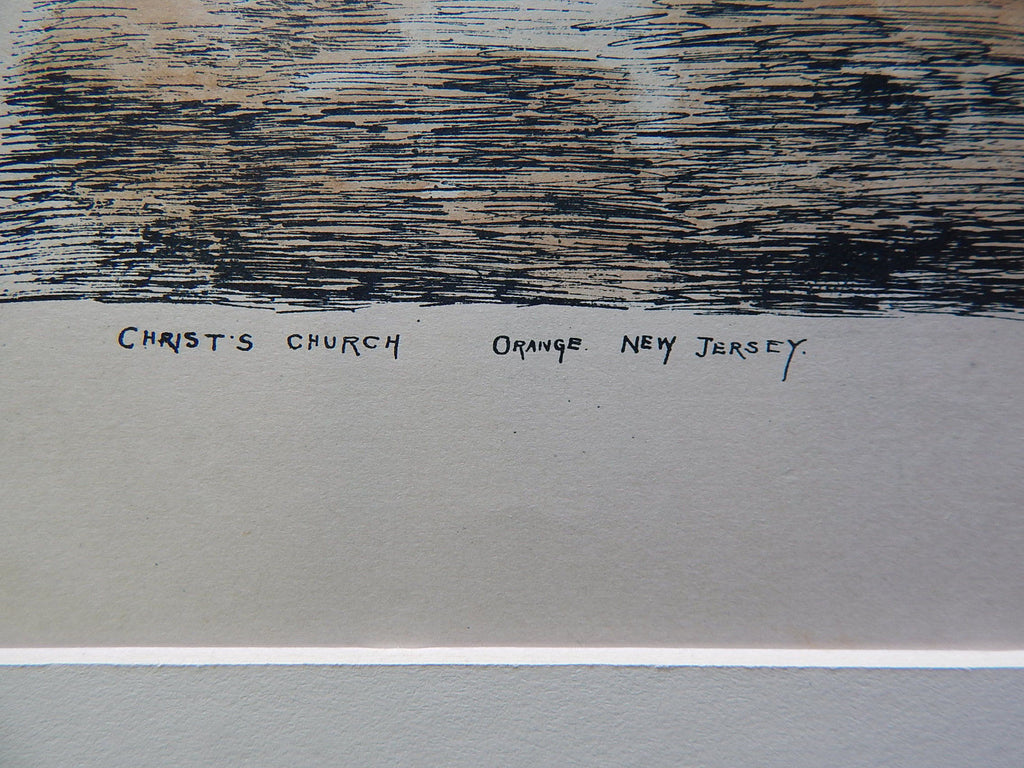 CHRIST'S CHURCH ORANGE. NEW JERSEY.